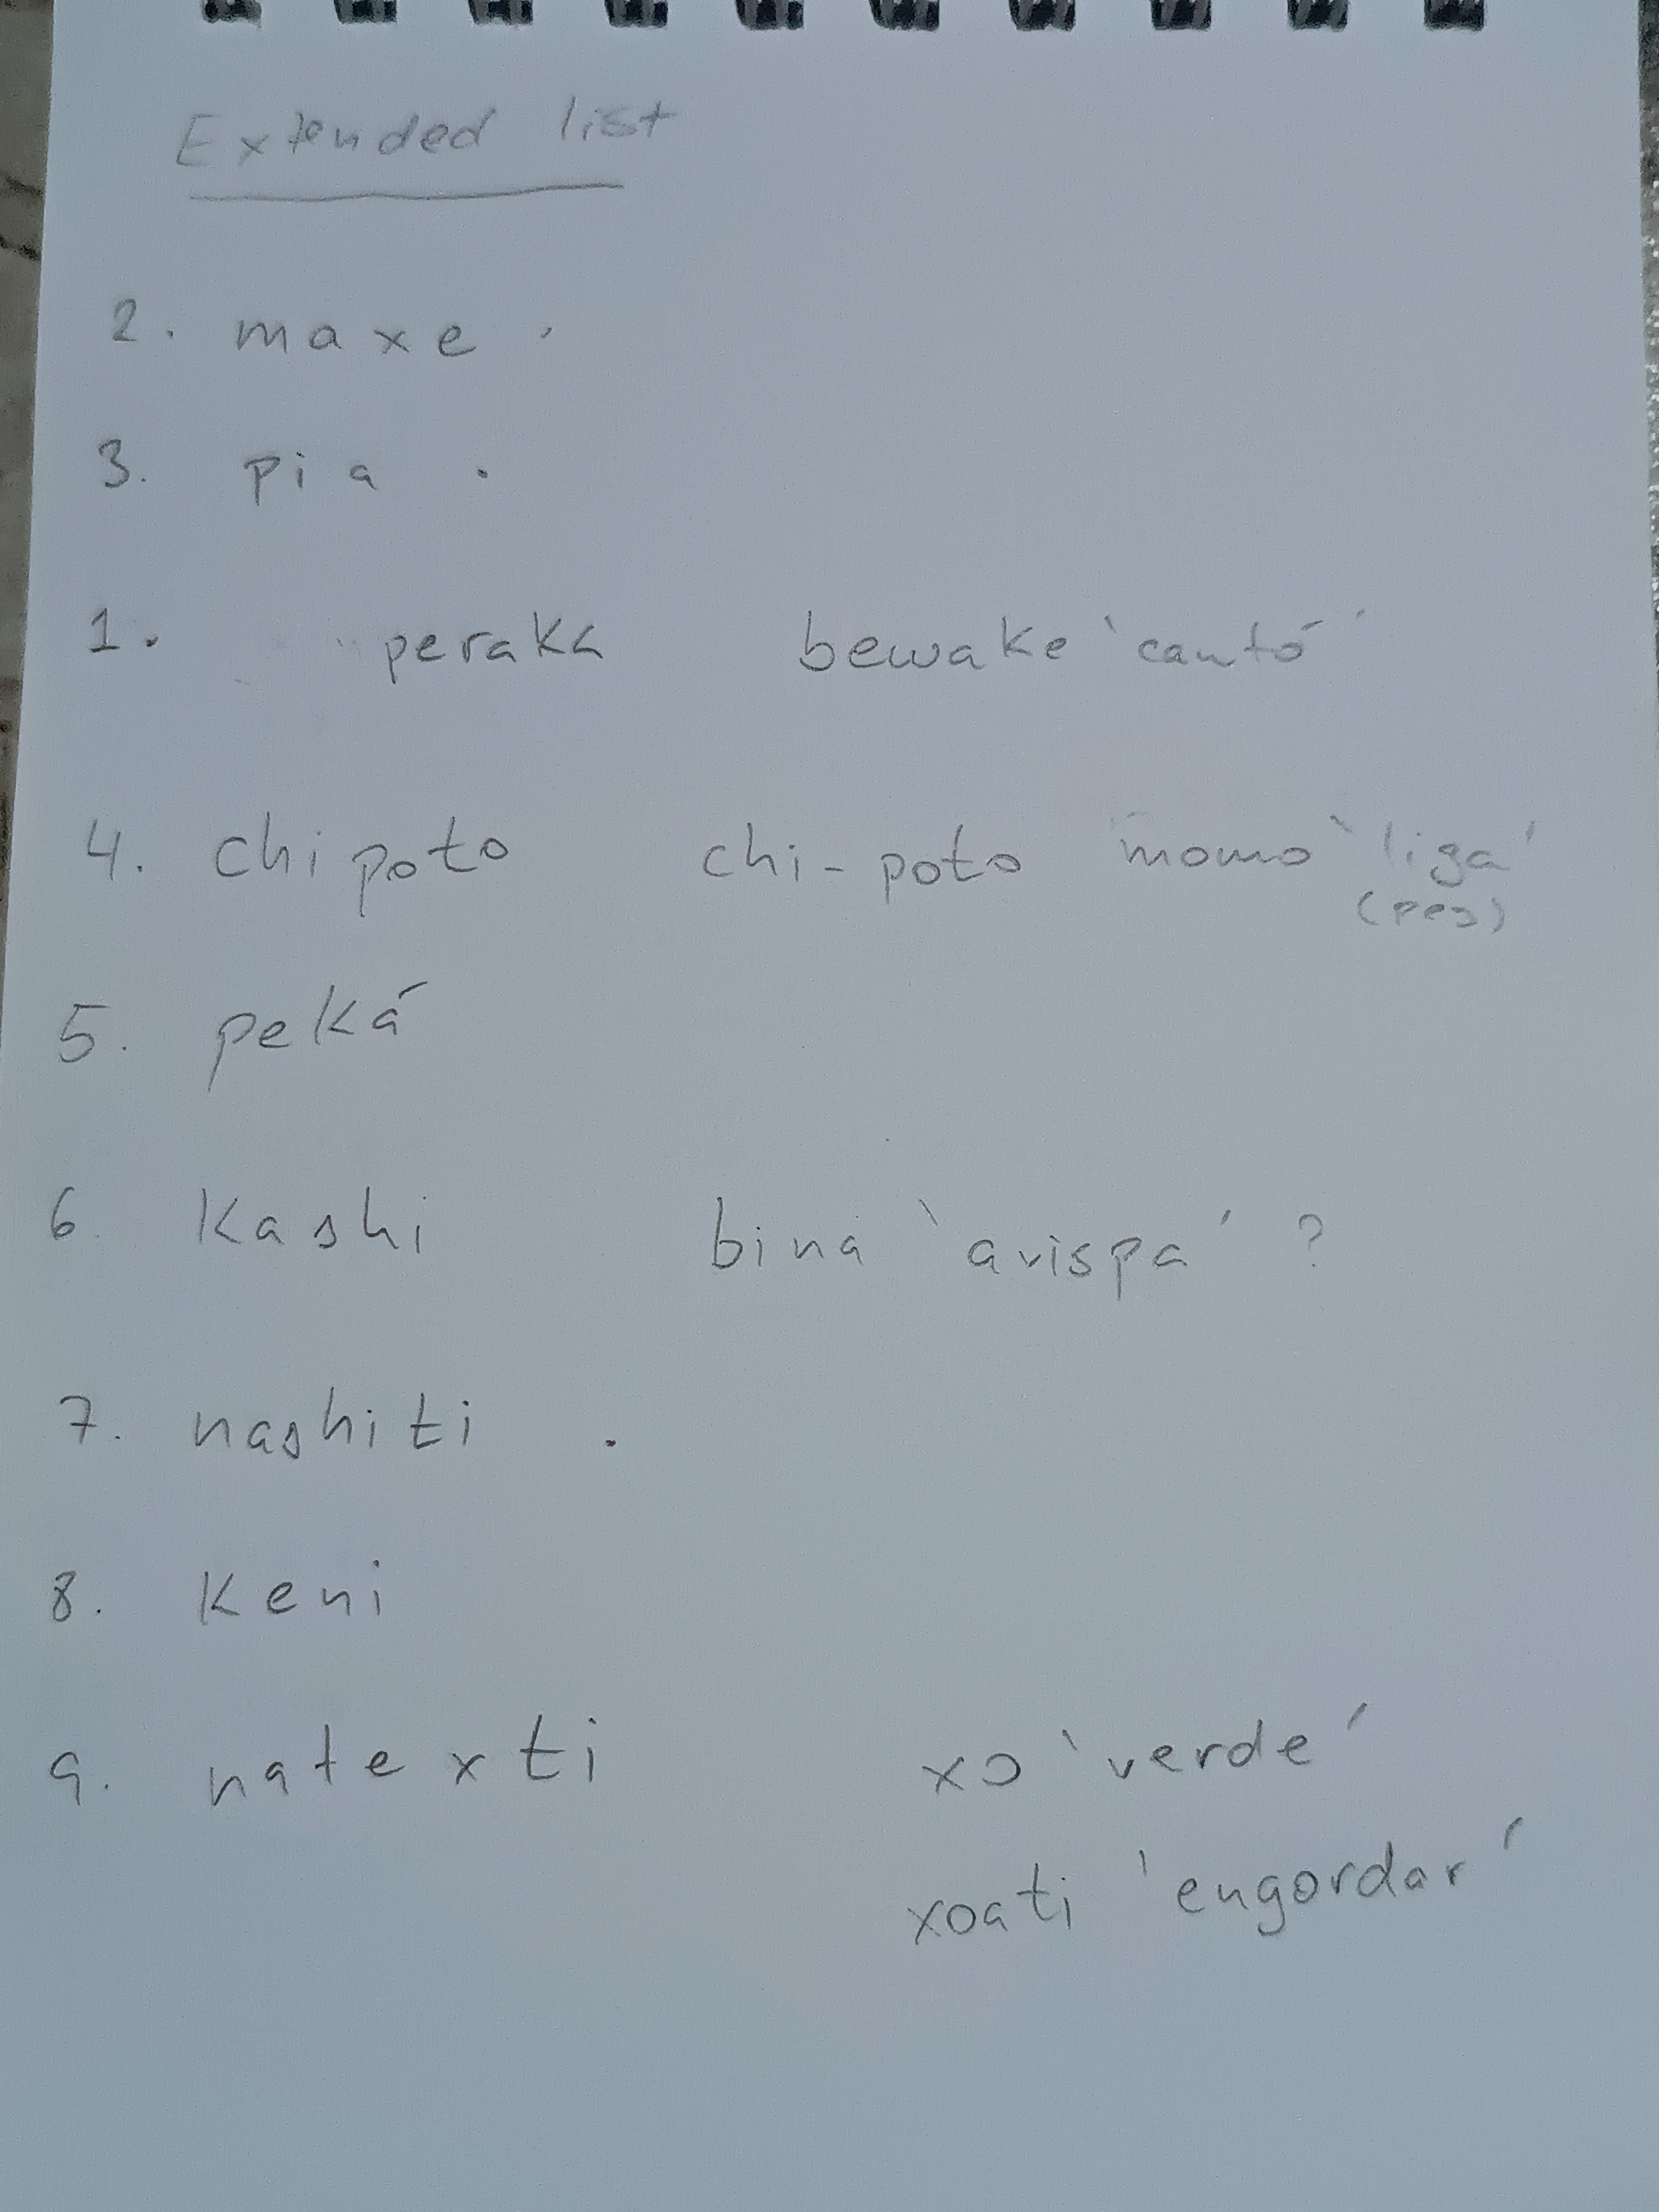 Extended list
2. maxe .
3. pia .
1. peraka bewake 'cantó'
4. chipoto chi-poto momo 'liga'
(pez)
5. peká
6. kashi bina 'avispa' ?
7. nashiti .
8. keni
9. natexti xo 'verde'
xoati 'engordar'